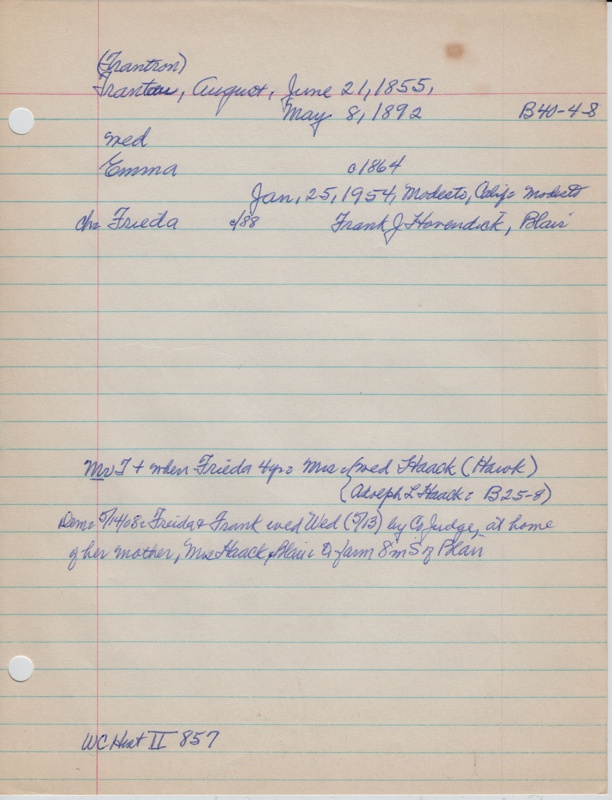 (Trantron)
Trantow, August, June 21, 1855,
May 8, 1892 B40-4-8
wed
Emma c1864
Jan, 25, 1954, Modesto, Calif: Modesto
ch: Frieda c/88 Frank J Hovendick, Blair
Mr T + when Frieda 4yr: Mrs wed Haack (Hawk)
(Adolph L Haack: B25-8)
Dem: 5/14/08: Freida & Frank wed Wed (5/13) by Co Judge, at home
of her mother, Mrs Haack, Blair: farm 8 m S of Blair
WC Hist II 857